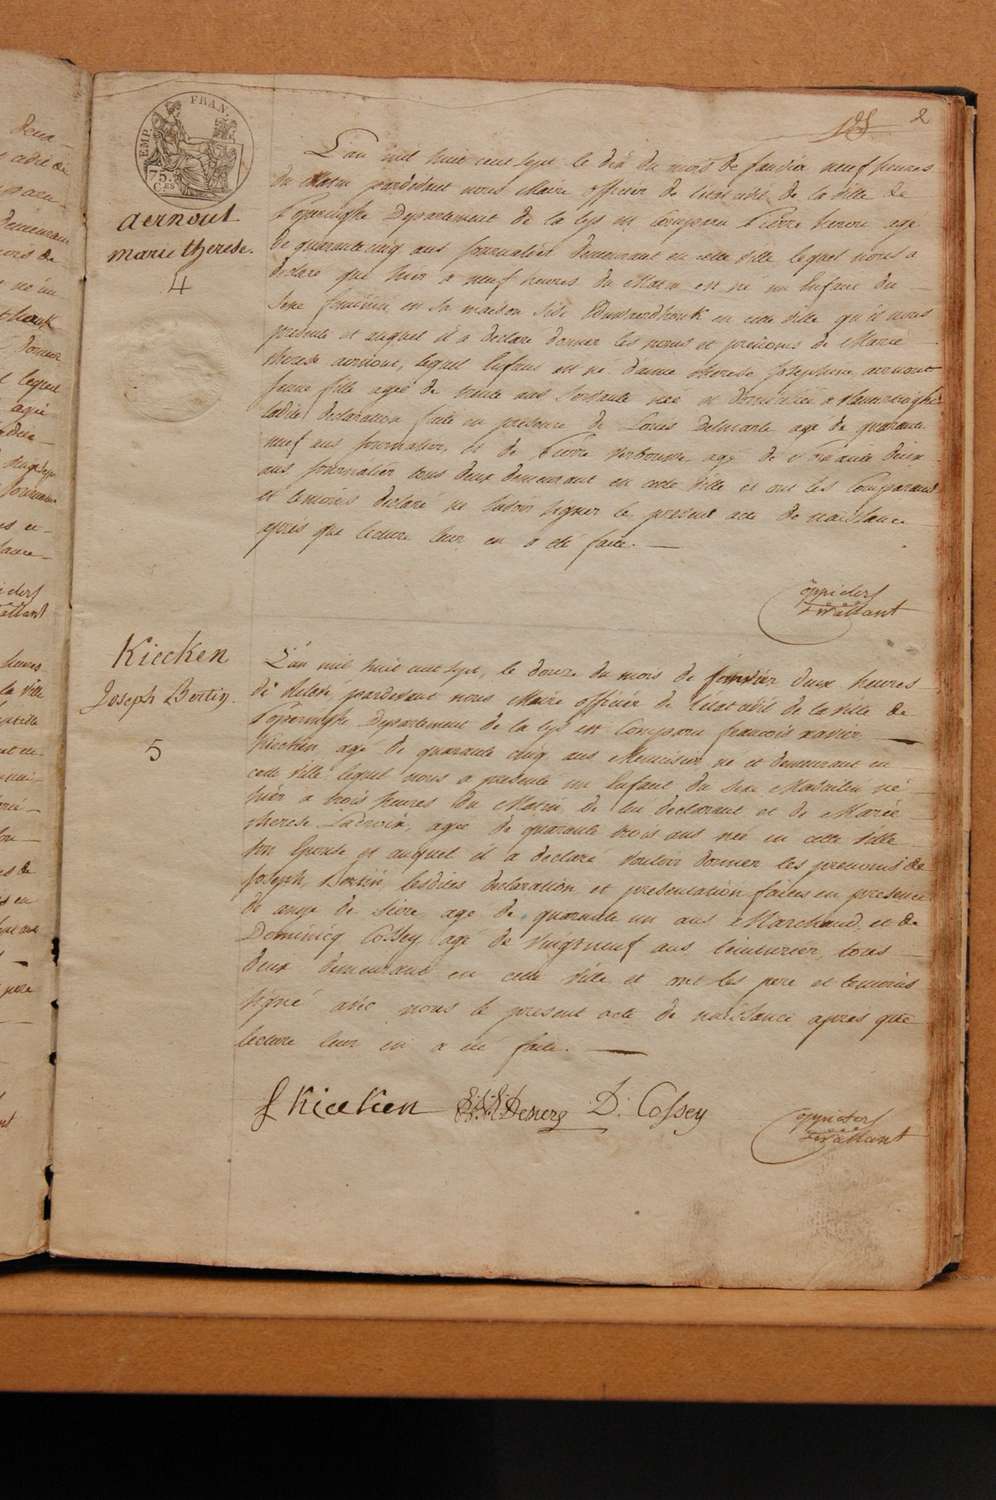 2
EMP. FRAN.
75.
C.ES
aernout
marie therese.
4
L'an mil huit cent sept le dix du mois de Janvier neuf heures
du Matin pardevant nous Maire officier de l'etat civil de la ville de
Poperinghe Departement de la lys est Comparu Pierre age
de quarante cinq ans Journalier demeurant en cette ville lequel nous a
declaré que hier a neuf heures du Matin est né un Enfant du
Sexe feminin en Sa maison Sise en cette ville qu'il nous
presente et auquel il a declaré donner les noms et prénoms de Marie
therese aernout, lequel Enfant est né d'anne therese Josephine aernout
jeune fille agée de trente ans née et a
ladite declaration faite en presence de Louis Delmarle age de quarante
neuf ans Journalier, et de Pierre age de deux
ans Journalier tous deux demeurant en cette Ville et ont les Comparant
et temoins declaré ne Savoir Signer le present acte de naissance
apres que lecture leur en a été faite. —
Kiecken
Joseph Bertin.
5
L'an mil huit cent sept, le douze du mois de Janvier deux heures
de Relevé, pardevant nous Maire officier de l'etat civil de la ville de
Poperinghe Departement de la lys est Comparu françois xavier
Kiecken, age de quarante cinq ans Menuisier né et demeurant en
cette Ville lequel nous a presente un Enfant du Sexe Masculin né
hier a trois heures du Matin de lui declarant et de Marie
therese Lacroix, agee de quarante trois ans née en cette Ville
Son Epouse et auquel il a declaré vouloir donner les prenoms de
Joseph, Bertin, lesdites declaration et presentation faites en presence
de ange de Sere, age de quarante un ans Marchand, et de
Dominicq Cossey agé de vingtneuf ans teinturier, tous
deux demeurant en cette Ville et ont les pere et temoins
Signé avec nous le present acte de naissance apres que
lecture leur en a été faite. —
f Kiecken D. Cossey